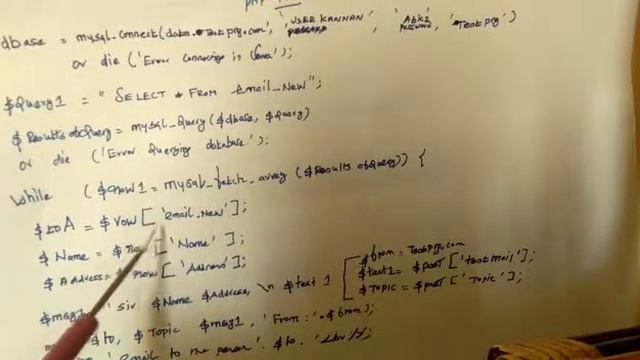 php
dbase = mysql_connect(data.Testprg.com', 'USER KANNAN', 'Abk2', 'Testprg')
or die ('Error Connecting in Server');
$Query1 = " SELECT * FROM Email_New";
$ResultsobQuery = mysql_Query($dbase, $Query)
or die ('Error Querying database');
While ($row1 = mysql_fetch_array ($Results obQuery)) {
$to A = $row ['email_New'];
$Name = $ ['Name'];
$Address = $row ['Address'];
$msg1 = 'Sir $Name $Address, \n $text 1
$from = Testprg.com
$text1 = $post ['testMail'];
$Topic = $post ['Topic'];
$to, $Topic $msg1, 'From: '. $from);
'Email to the person'. $to. '<br/>